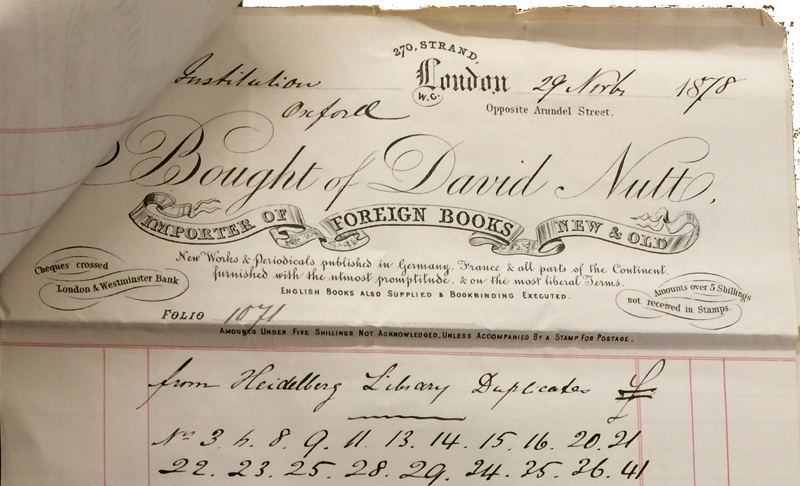 270, STRAND,
Institution London 29 Novbr 1878
W.C.
Oxford Opposite Arundel Street.
Bought of David Nutt,
IMPORTER OF FOREIGN BOOKS NEW & OLD
New Works & Periodicals published in Germany, France & all parts of the Continent,
furnished with the utmost promptitude, & on the most liberal Terms.
ENGLISH BOOKS ALSO SUPPLIED & BOOKBINDING EXECUTED.
Cheques crossed
London & Westminster Bank
Amounts over 5 Shillings
not received in Stamps.
FOLIO 1071
AMOUNTS UNDER FIVE SHILLINGS NOT ACKNOWLEDGED, UNLESS ACCOMPANIED BY A STAMP FOR POSTAGE.
from Heidelberg Library Duplicates
Nos 3. 8. 9. 11. 13. 14. 15. 16. 20. 21
22. 23. 25. 28. 29. 34. 35. 36. 41